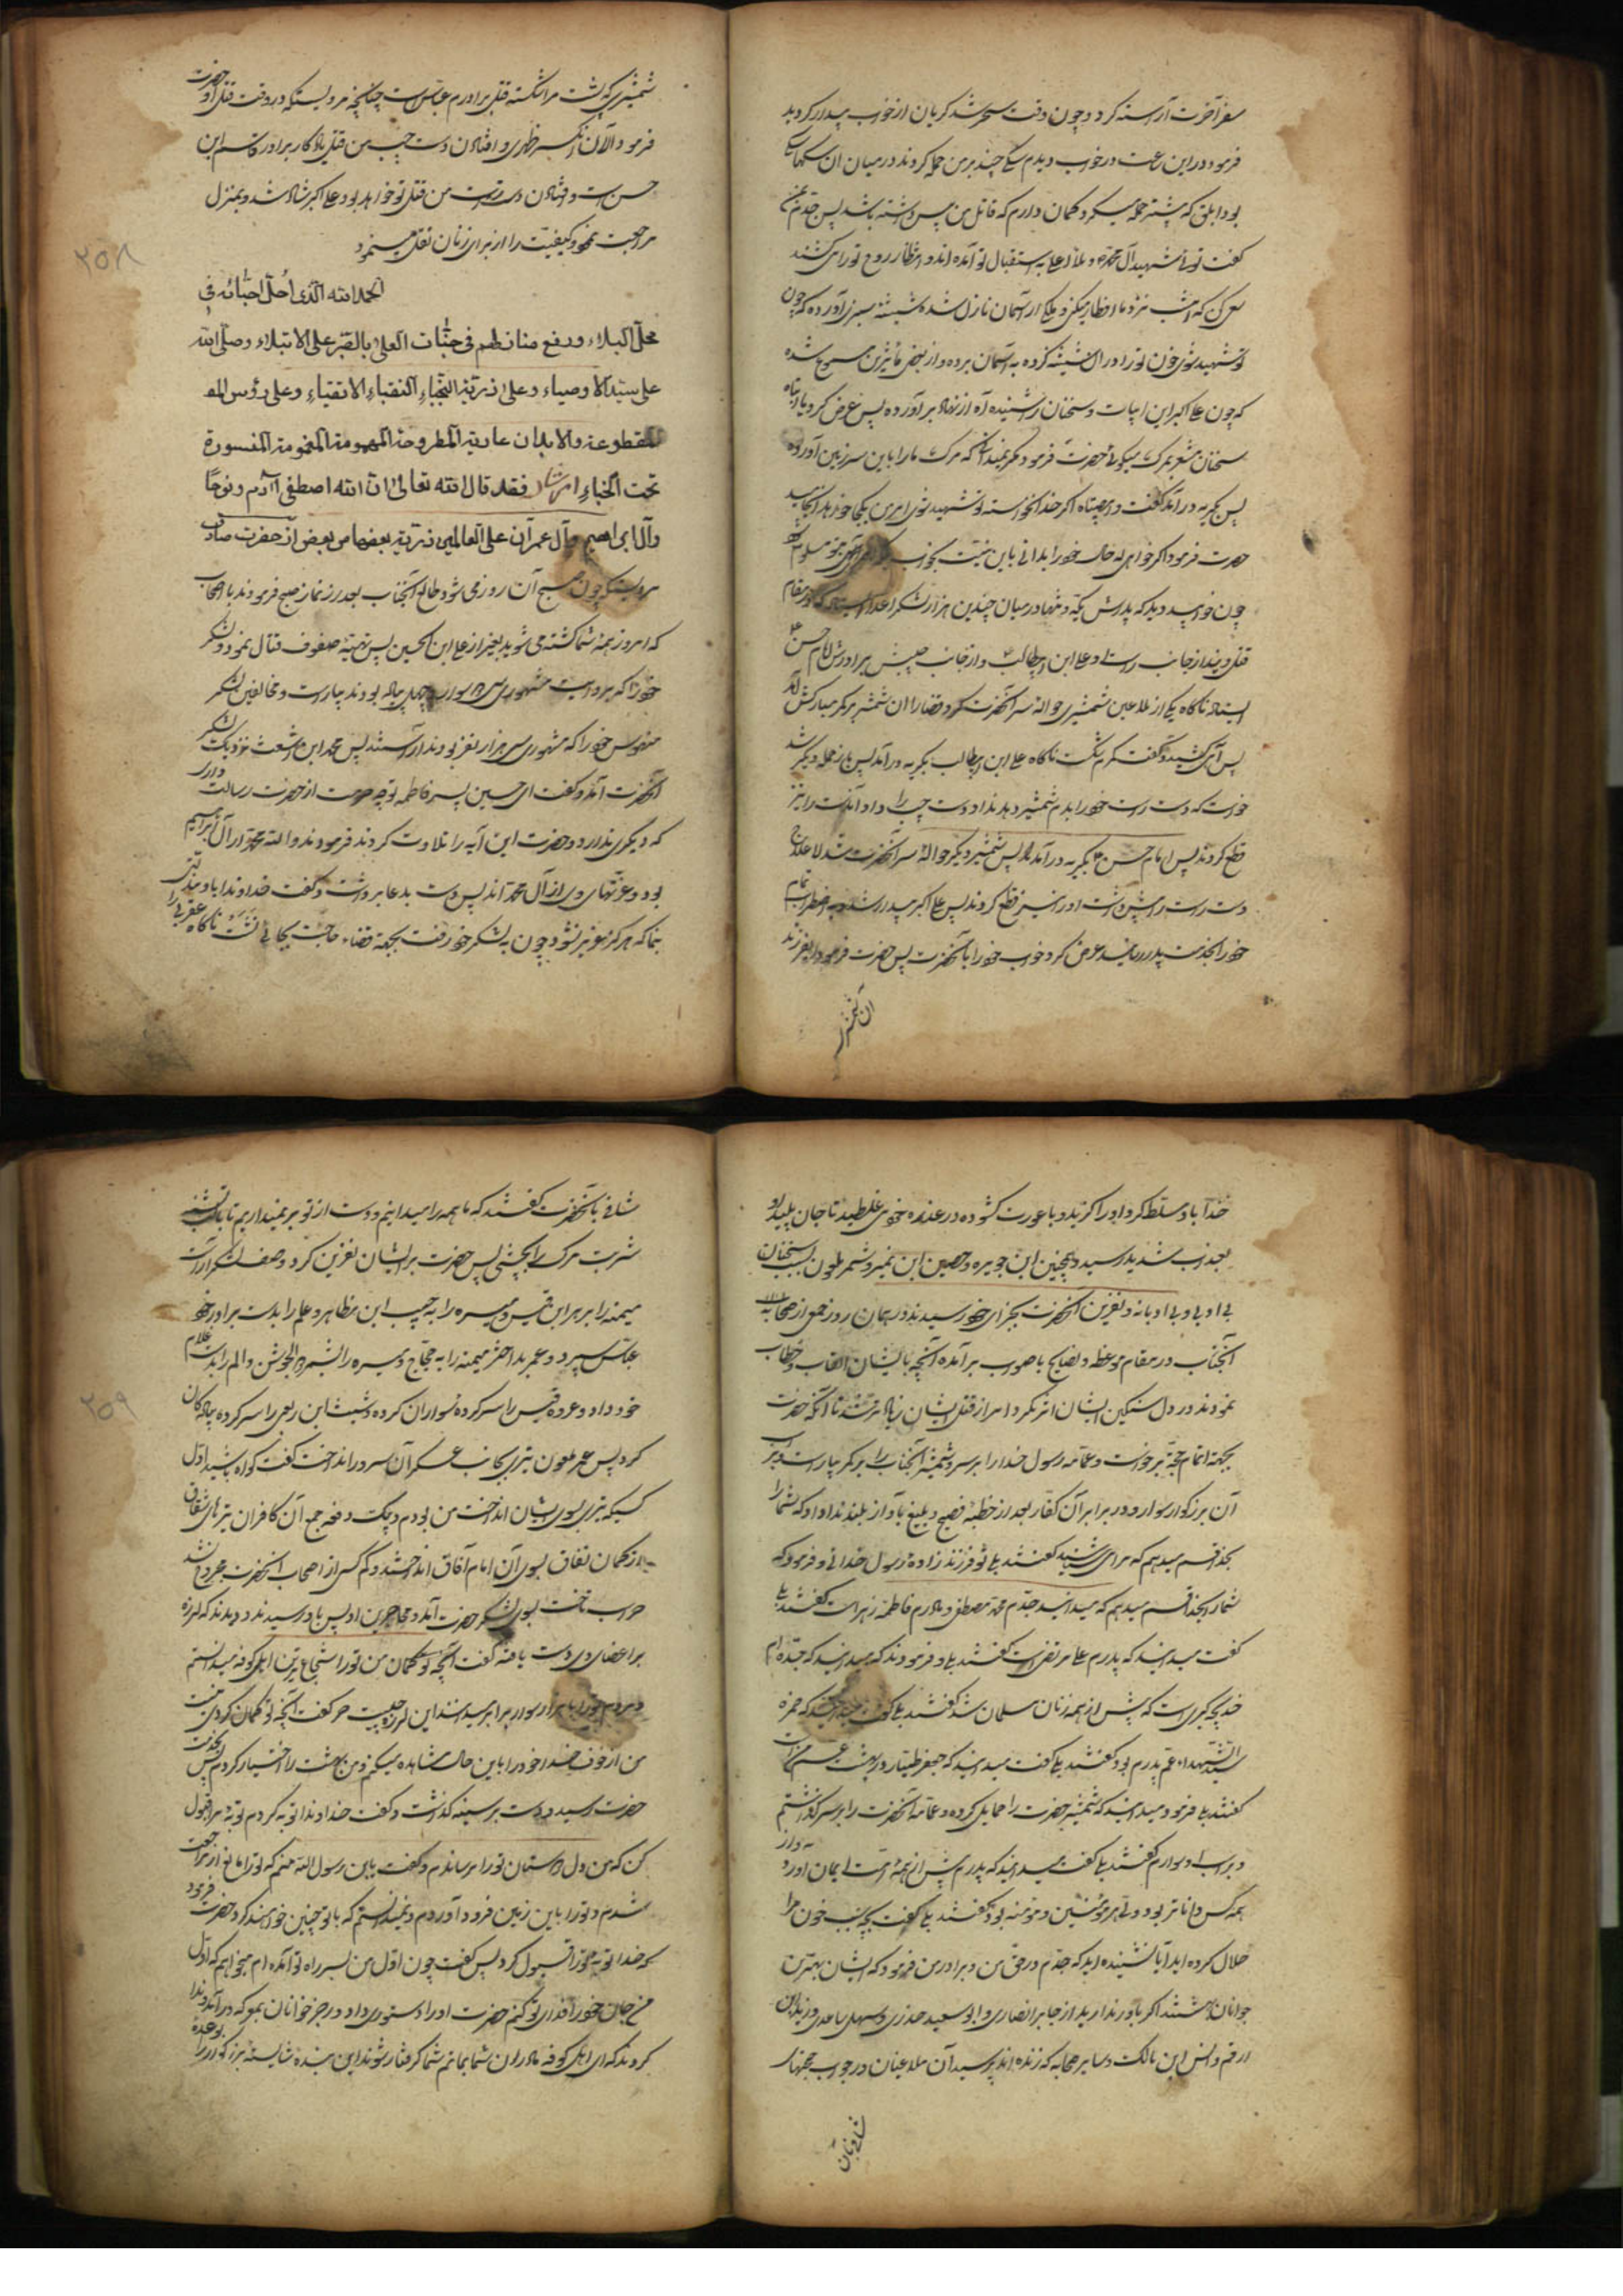 سفر آخرت آراسته کرد و چون وقت سحر شد گریان از خواب بیدار گردید
فرمود در این ساعت در خواب دیدم سگی چند بر من حمله کردند در میان ان سگها سگی
بود ابلق که بیشتر حمله میکرد و گمان دارم که قاتل من پیس داشته باشد پس جدم
گفت توئی شهید آل محمد و ملاء اعلی به استقبال تو آمده اند و انتظار روح تو را می کشند
سعی کن که امشب نزد ما افطار میکنی و ملکی از آسمان نازل شده شیشه سبزی آورده که چون
تو شهید شوی خون تو را در ان شیشه کرده به آسمان برده و از بعض مسموع شده
که چون علی اکبر این ابیات و سخنان را شنیده آه از نهاد بر آورده پس عرض کرد یا ابتاه
سخنان مشعر بمرگ میگوئی حضرت فرمود مگر نمیدانی که مرگ ما را باین سرزمین آورده
پس بگریه در آمد گفت وا مصیبتاه اگر خدا نخواسته تو شهید شوی امر من بکجا خواهد انجامید
حضرت فرمود اگر خواهی که حال خود را بدانی باین نیت بخواب
چون خوابید دید که پدرش یکه و تنها در میان چندین هزار لشکر اعدا ایستاده که در مقام
قتل ویند از جانب راست او علی ابن ابیطالب و از جانب چپش برادرش امام حسن
ایستاده ناگاه یکی از ملاعین شمشیری حواله سر آنحضرت کرد و قضا را ان شمشیر بر کمر مبارکش آمد
پس آهی کشید و گفت کمرم شکست ناگاه علی ابن ابیطالب بگریه در آمد پس باز حمله دیگر شد
خواست که دست راست خود را بدم شمشیر دهد نداد دست چپ را داد آن دست را نیز
قطع کردند پس امام حسن بگریه در آمد پس شمشیر دیگر حواله سر آنحضرت شد لاعلاج
دست راست را پیش داشت او را نیز قطع کردند پس علی اکبر بیدار شد به اضطراب تمام
خود را بخدمت پدر رسانید عرض کرد خواب خود را بآنحضرت پس حضرت فرمود ای فرزند
ان شمشیر
شمشیری که پشت مرا شکسته قتل برادرم عباس است چنانچه مرویستکه در وقت قتل او حضرت
فرمود الآن انکسر ظهری و افتادن دست چپ من قتل یادگار برادر قاسم ابن
حسن است و افتادن دست راست من قتل تو خواهد بود علی اکبر شاد شد و بمنزل
مراجعت نمود و کیفیت را از برای زنان نقل مینمود
الحمد لله الذی احل احبائه فی
محل البلاء و رفع منازلهم فی جنات العلی بالصبر علی الابتلاء و صلی الله
علی سید الاوصیاء و علی ذریته النجباء النقباء الاتقیاء و علی رؤس الم
المقطوعة والابدان عاریة المطروحة المهمومة المغمومة المنسورة
تحت الخباء اما بعد فقد قال الله تعالی ان الله اصطفی آدم و نوحا
وآل ابراهیم وآل عمران علی العالمین ذریة بعضها من بعض از حضرت صادق
مرویستکه چون صبح آن روز می شود طالع آنجناب بعد از نماز صبح فرمودند با اصحاب
که امروز همه شما کشته می شوید بغیر از علی ابن الحسین پس تهیه صفوف قتال نمود و لشکر
خود را که بروایت مشهور سی و دو سوار چهل پیاده بودند بیاراست و مخالفین لشکر
منحوس خود را که مشهور سی هزار نفر بودند آراستند پس محمد ابن اشعث نزدیک لشکر
آنحضرت آمد و گفت ای حسین پسر فاطمه تو چه حرمت از حضرت رسالت داری
که دیگری ندارد و حضرت این آیه را تلاوت کردند فرمودند والله محمد از آل ابراهیم
بود و عترتهای وی از آل محمد اند پس دست بدعا برداشت و گفت خداوندا باو ذلتی
بنما که هرگز عزیز نشود چون به لشکر خود رفت بجهة قضاء حاجت بجائی نشست ناگاه عقربی را
خدا باو مسلط کرد او را گزید و با عورت گشوده در عذره خود می غلطید تا جان پلید او
بعذاب شدید رسید و همچنین ابن جویره و حصین ابن نمیر و شمر ملعون بسبب سخنان
بی ادبی و بی ادبانه و نفرین آنحضرت بجزای خود رسیدند و در همان روز جمعی از صحابه
آنجناب در مقام موعظه و نصایح با صواب بر آمده آنچه بایشان القاب و خطاب
نمودند در دل سنگین ایشان اثر نکرد و امر از قتل ایشان زیاد تر شد تا آنکه حضرت
بجهة اتمام حجة برخواست و عمامه رسول خدا را بر سر و شمشیر آنجناب را بر کمر بیاراست و بر اسب
آن بزرگوار سوار و در برابر آن کفار بعد از خطبه فصیح و بلیغ بآواز بلند ندا داد که شما را
بخدا قسم میدهم که مرا می شناسید گفتند بلی تو فرزند زاده رسول خدائی و فرمود که
شما را بخدا قسم میدهم که میدانید جدم محمد مصطفی و مادرم فاطمه زهرا است گفتند بلی
گفت میدانید که پدرم علی مرتضی است گفتند بلی و فرمودند که میدانید که جده ام
خدیجه کبری است که پیش از همه زنان مسلمان شد گفتند بلی گفت میدانید که حمزه
سید الشهداء عم پدرم بود گفتند بلی گفت میدانید که جعفر طیار در بهشت عم من است
گفتند بلی فرمود میدانید که شمشیر حضرت را حمایل کرده و عمامه آنحضرت را بر سر گذاشتم
و بر اسب او سوارم گفتند بلی گفت میدانید که پدرم پیش از همه امت ایمان آورد و از
همه کس داناتر بود و ولی هر مؤمنین و مؤمنه بود گفتند بلی گفت بچه سبب خون مرا
حلال کرده اید آیا نشنیده اید که جدم در حق من و برادر من فرمود که ایشان بهترین
جوانان بهشتند اگر باور ندارید از جابر انصاری و ابو سعید خدری و سهل ساعدی و زید ابن
ارقم و انس ابن مالک و سایر صحابه که زنده اند بپرسید آن ملاعینان در جواب حجتهای
شافی بان
شافی بآنحضرت گفتند که ما همه را میدانیم و دست از تو بر نمیداریم تا با لب تشنه
شربت مرگ را بچشی پس حضرت بر ایشان نفرین کرد و صف لشکر آراست
میمنه را بزهیر ابن قین و میسره را به حبیب ابن مظاهر و علم را بدست برادر خود
عباس سپرد و عمر بد اختر میمنه را به حجاج و میسره را بشمر ذی الجوشن و علم را بدست غلام
خود داد و عروه قیس را سرکرده سواران کرد و شیث ابن ربعی را سرکرده پیادگان
کرد پس عمر ملعون تیری بجانب عسکر آن سرور انداخت گفت گواه باشید اول
کسیکه تیری بسوی ایشان انداخت من بودم و بیک دفعه جمع آن کافران تیرهای شقاق
از کمان نفاق بسوی آن امام آفاق انداختند و کم کسی از اصحاب آنحضرت مجروح نشد
حر اسب تاخت بسوی لشکر حضرت آمد و مهاجر بن اوس باو رسید دید که لرزه
بر اعضای وی دست یافته گفت آنچه تو بگمان من تو را شجاع ترین اهل کوفه میدانستم
و مردم تو را با هزار سوار برابر میدانستند این لرزه چیست حر گفت آنچه تو گمان کردی نیست
من از خوف خدا خود را باین حال مشاهده میکنم و من بهشت را اختیار کردم پس بخدمت
حضرت رسید و دست بر سینه گذاشت و گفت خداوندا توبه کردم توبه مرا قبول
کن که من دل دوستان تو را ترساندم و گفت یابن رسول الله منم که تو را مانع از مراجعت
شدم و تو را باین زمین فرود آوردم و نمیدانستم که با تو چنین خواهند کرد حضرت فرمود
که خدا توبه تو را قبول کرد پس گفت چون اول من بسر راه تو آمده ام میخواهم که اول
من جان خود را فدای تو کنم حضرت او را دستوری داد و رجز خوانان بمعرکه در آمد و ندا
کرد که ای اهل کوفه مادران شما بماتم شما گرفتار شوند این بنده شایسته بزرگوار را بوعده
۲۵۸
۲۵۹